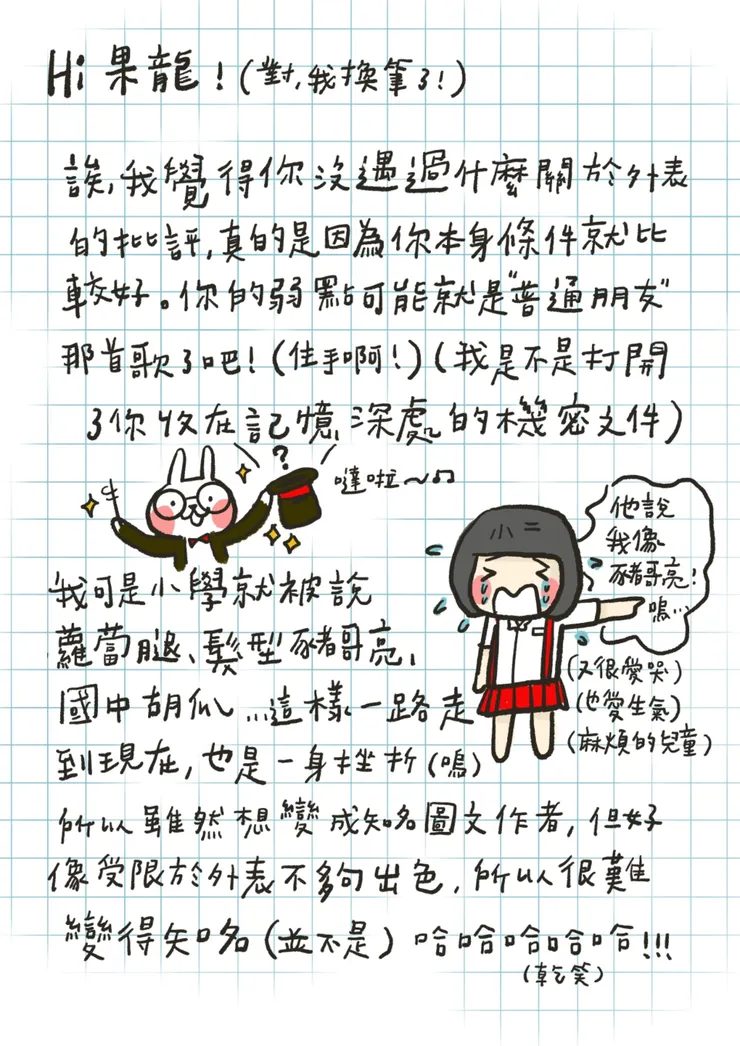 Hi 果龍！(對,我換筆了!)
誒,我覺得你沒遇過什麼關於外表
的批評,真的是因為你本身條件就比
較好。你的弱點可能就是"普通朋友"
那首歌了吧!(住手啊!)(我是不是打開
了你收在記憶深處的機密文件)
?
噠啦~♫
小二
他說
我像
豬哥亮!
嗚…
我可是小學就被說
蘿蔔腿、髮型豬哥亮、
國中胡瓜…這樣一路走
到現在,也是一身挫折(嗚)
(又很愛哭)
(也愛生氣)
(麻煩的兒童)
所以雖然想變成知名圖文作者,但好
像受限於外表不夠出色,所以很難
變得知名(並不是)哈哈哈哈哈!!!
(乾笑)